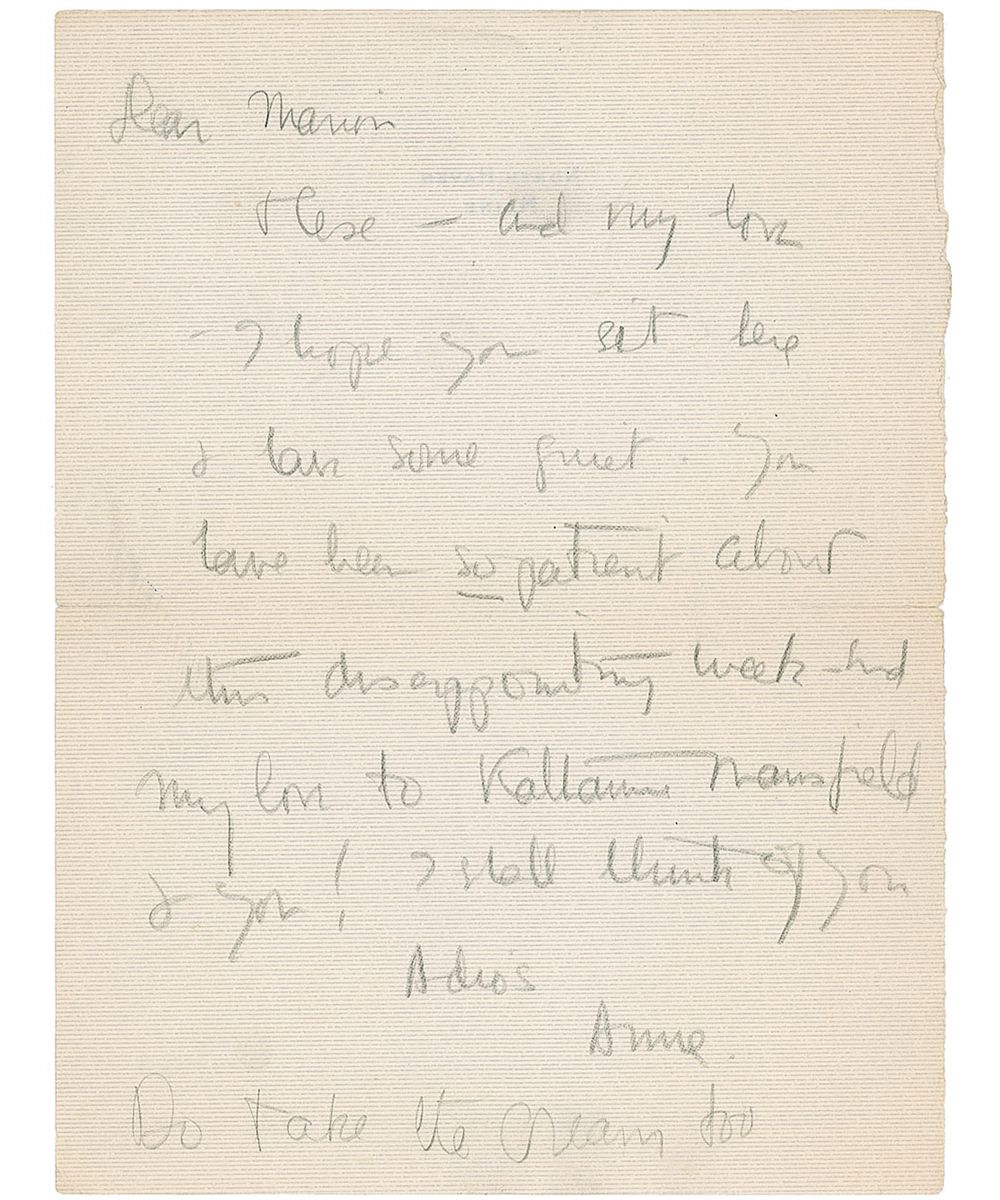 Dear Marion
these – and my love
- I hope you sit here
& have some quiet. You
have been so patient about
this disappointing week-end
My love to Katharine Mansfield
& you! I shall think of you
Adios
Anne.
Do take the cream too